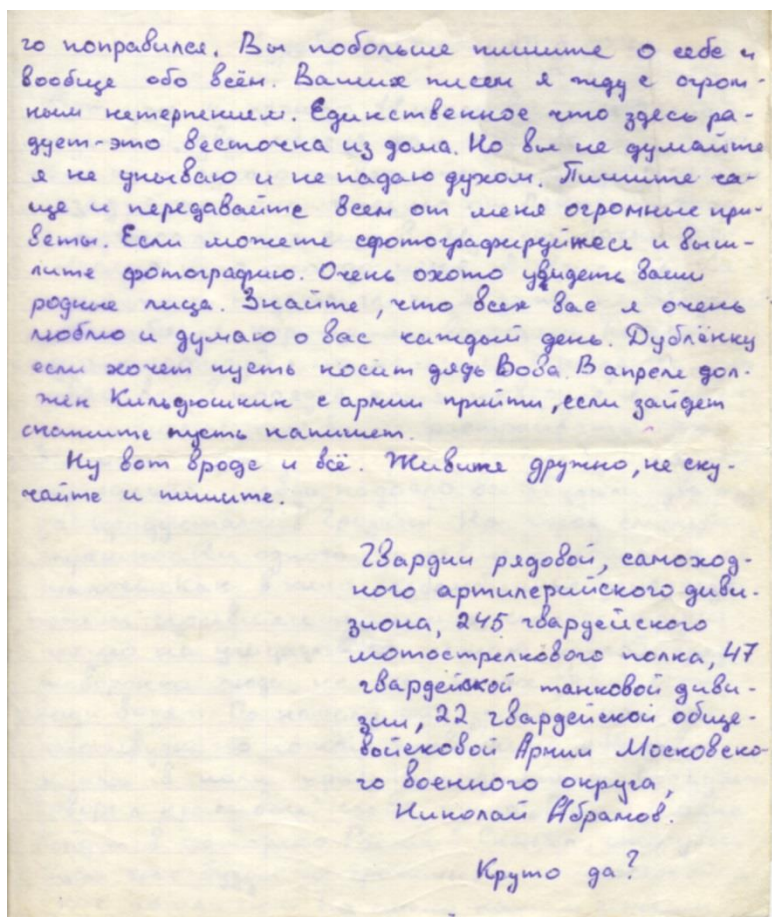 го поправился. Вы побольше пишите о себе и
вообще обо всём. Ваших писем я жду с огром-
ным нетерпением. Единственное что здесь ра-
дует-это весточка из дома. Но вы не думайте
я не унываю и не падаю духом. Пишите ча-
ще и передавайте всем от меня огромные при-
веты. Если можете сфотографируйтесь и выш-
лите фотографию. Очень охото увидеть ваши
родные лица. Знайте, что всех вас я очень
люблю и думаю о вас каждый день. Дублёнку
если хочет пусть носит дядь Вова. В апреле дол-
жен Кильдюшкин с армии прийти, если зайдет
скажите пусть напишет.
Ну вот вроде и всё. Живите дружно, не ску-
чайте и пишите.
Гвардии рядовой, самоход-
ного артилерийского диви-
зиона, 245 гвардейского
мотострелкового полка, 47
гвардейской танковой диви-
зии, 22 гвардейской обще-
войсковой Армии Московско-
го военного округа,
Николай Абрамов.
Круто да?